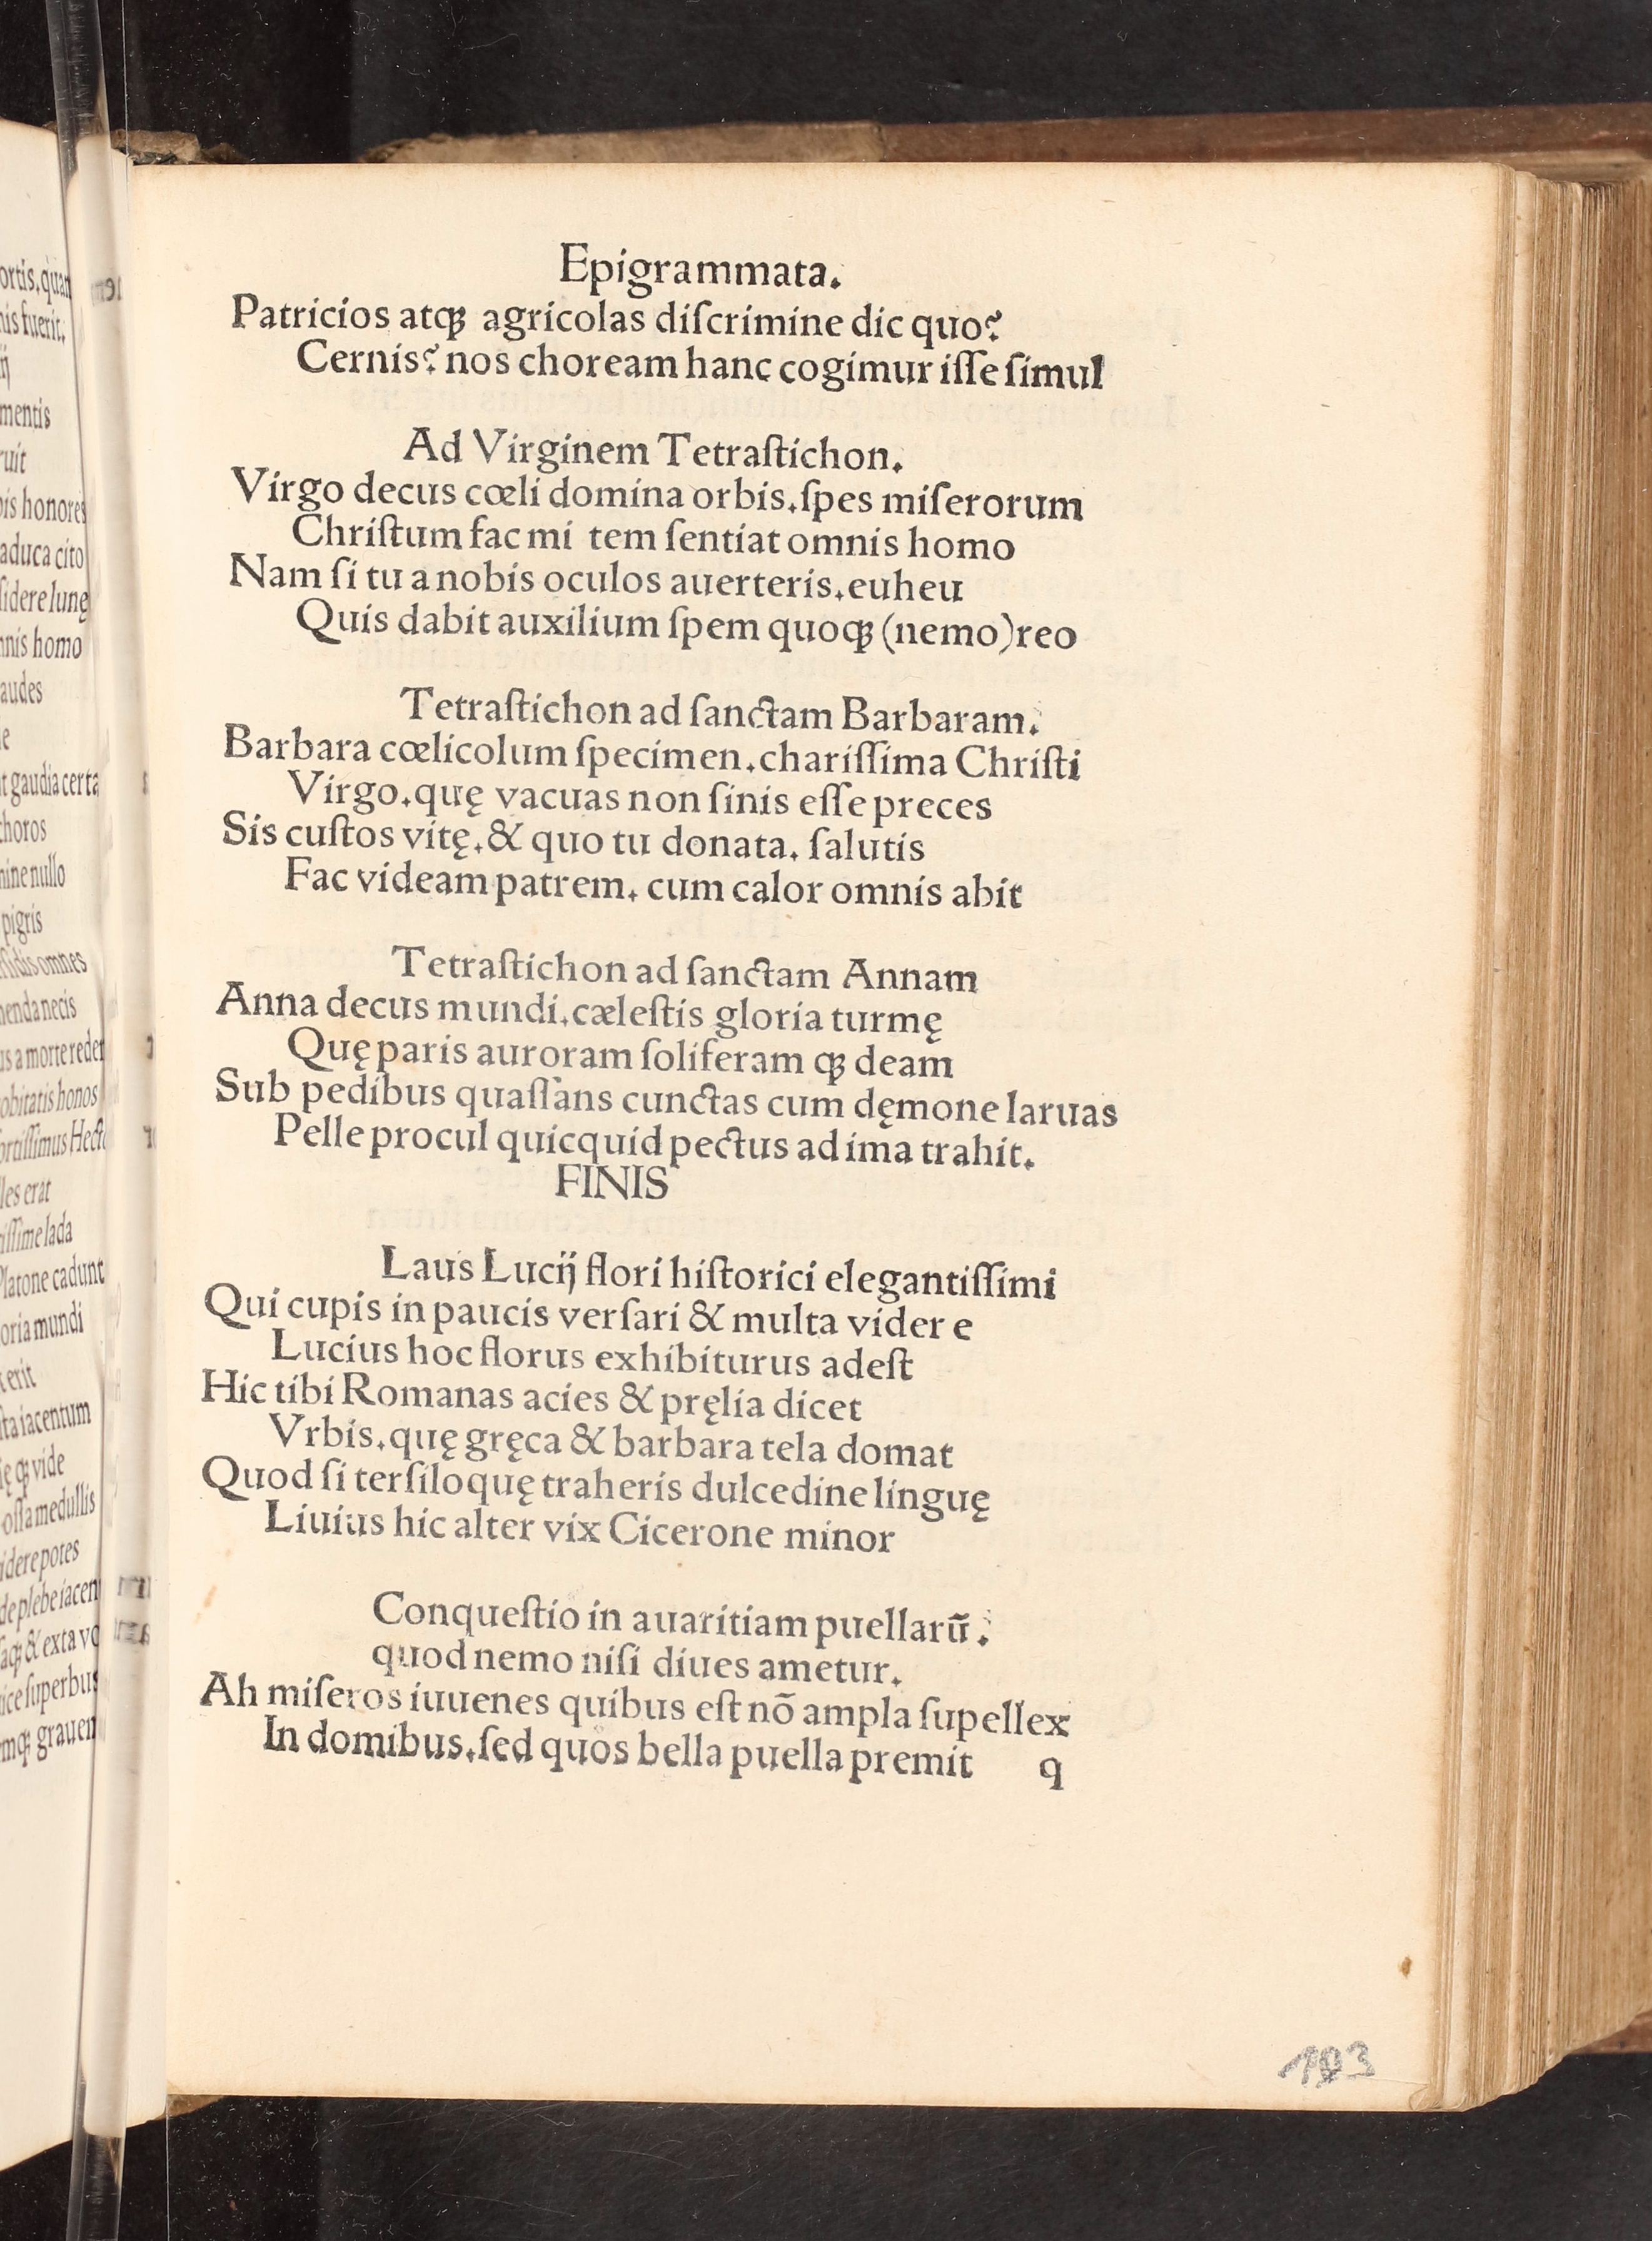 Epigrammata.
Patricios atqꝫ agricolas diſcrimine dic quo?
Cernis? nos choream hanc cogimur iſſe ſimul
Ad Virginem Tetraſtichon.
Virgo decus cœli domina orbis. ſpes miſerorum
Chriſtum fac mi tem ſentiat omnis homo
Nam ſi tu a nobis oculos auerteris. euheu
Quis dabit auxilium ſpem quoqꝫ (nemo) reo
Tetraſtichon ad ſanctam Barbaram.
Barbara cœlicolum ſpecimen. chariſſima Chriſti
Virgo. quę vacuas non ſinis eſſe preces
Sis cuſtos vitę. & quo tu donata. ſalutis
Fac videam patrem. cum calor omnis abit
Tetraſtichon ad ſanctam Annam
Anna decus mundi. cæleſtis gloria turmę
Quę paris auroram ſoliferam qꝫ deam
Sub pedibus quaſſans cunctas cum dęmone laruas
Pelle procul quicquid pectus ad ima trahit.
FINIS
Laus Lucij flori hiſtorici elegantiſſimi
Qui cupis in paucis verſari & multa vider e
Lucius hoc florus exhibiturus adeſt
Hic tibi Romanas acies & pręlia dicet
Vrbis. quę gręca & barbara tela domat
Quod ſi terſiloquę traheris dulcedine linguę
Liuius hic alter vix Cicerone minor
Conqueſtio in auaritiam puellarū.
quod nemo niſi diues ametur.
Ah miſeros iuuenes quibus eſt nō ampla ſupellex
In domibus. ſed quos bella puella premit q
193